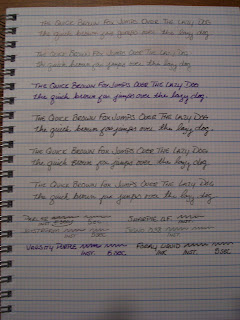 The Quick Brown Fox Jumps Over The Lazy Dog
the quick brown fox jumps over the lazy dog
The Quick Brown Fox Jumps Over The Lazy Dog
the quick brown fox jumps over the lazy dog
The Quick Brown Fox Jumps Over The Lazy Dog
the quick brown fox jumps over the lazy dog.
The Quick Brown Fox Jumps Over The Lazy Dog
the quick brown fox jumps over the lazy dog.
The Quick Brown Fox Jumps Over The Lazy Dog
the quick brown fox jumps over the lazy dog
The Quick Brown Fox Jumps Over The Lazy Dog
the quick brown fox jumps over the lazy dog.
INST. 5 SEC
Varsity Purple
INST. 5 SEC INST. 5 SEC